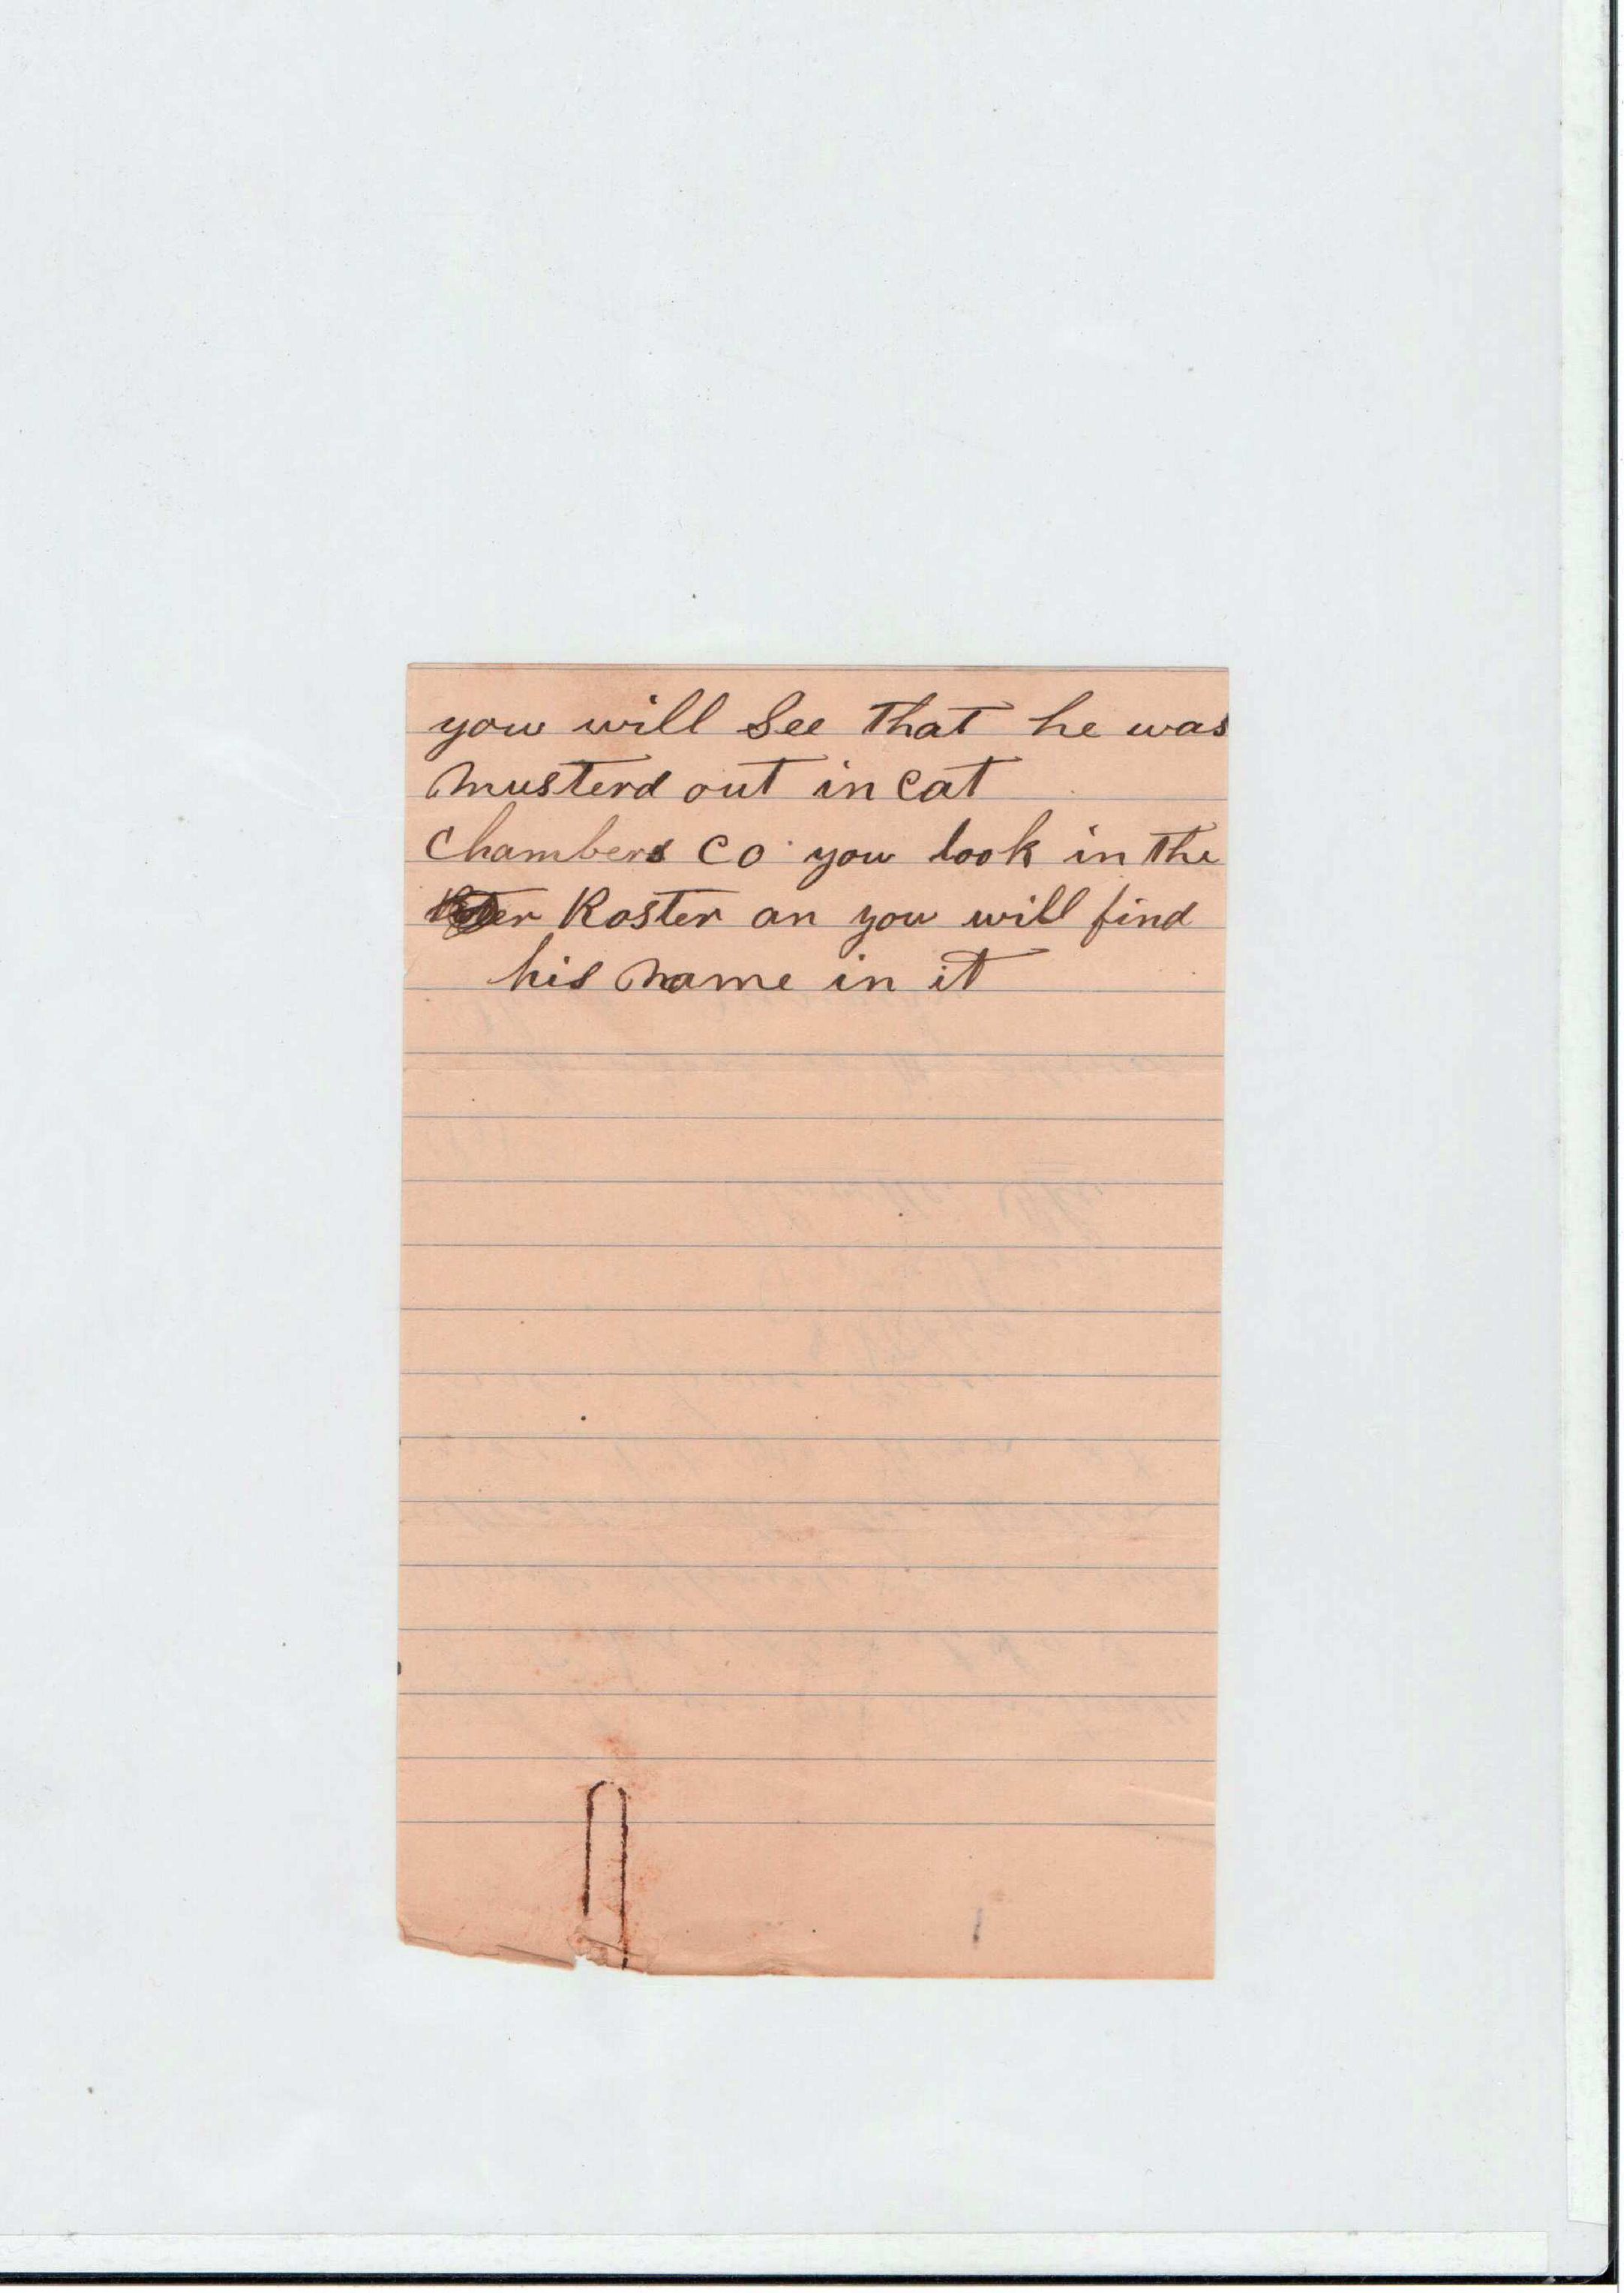 you will See that he was
musterd out in Cat
Chambers Co you look in the
Roster an you will find
his name in it